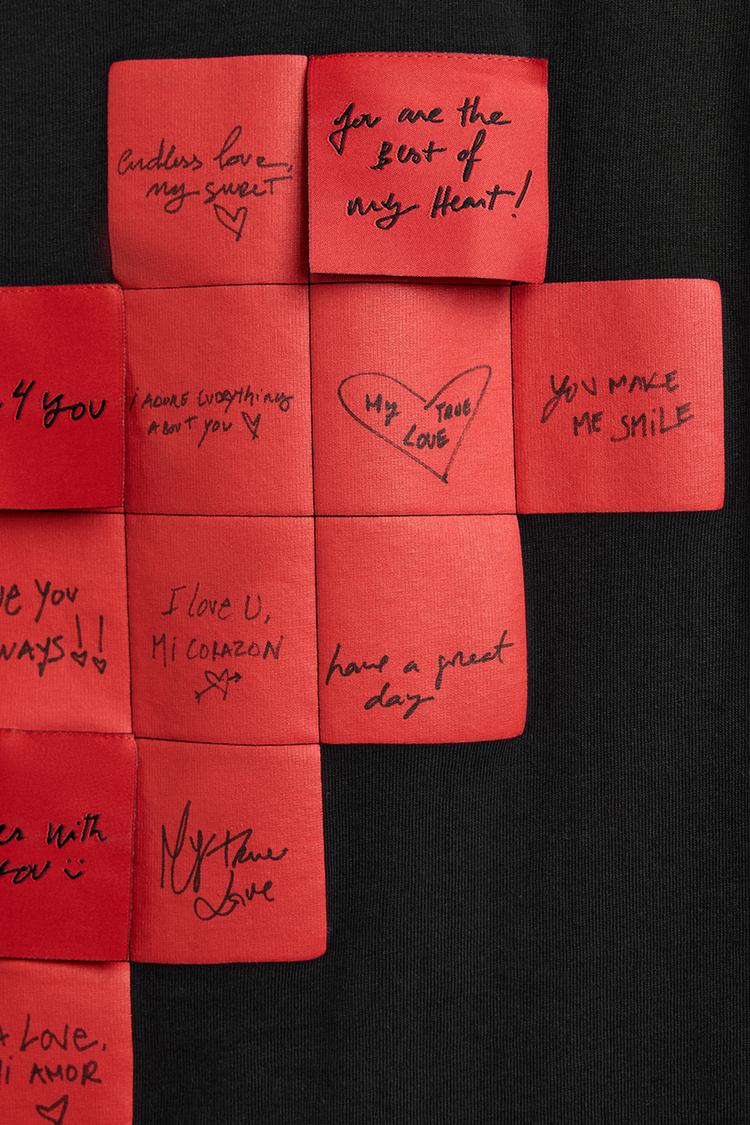 endless love,
my sweet
you are the
Best of
my Heart!
4 you
i ADORE EVERYthing
ABOUT you
My TRUE
LOVE
YOU MAKE
ME SMILE
you
I love U,
Mi CORAZON
have a great
day
with
My true
Love
LOVE,
AMOR